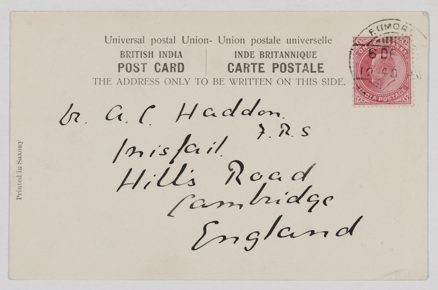 Universal postal Union- Union postale universelle
BRITISH INDIA INDE BRITANNIQUE
POST CARD CARTE POSTALE
THE ADDRESS ONLY TO BE WRITTEN ON THIS SIDE.
Dr. A. C. Haddon.
F.R.S
Inisfail.
Hills Road
Cambridge
England
Printed in Saxony
INDIA POSTAGE